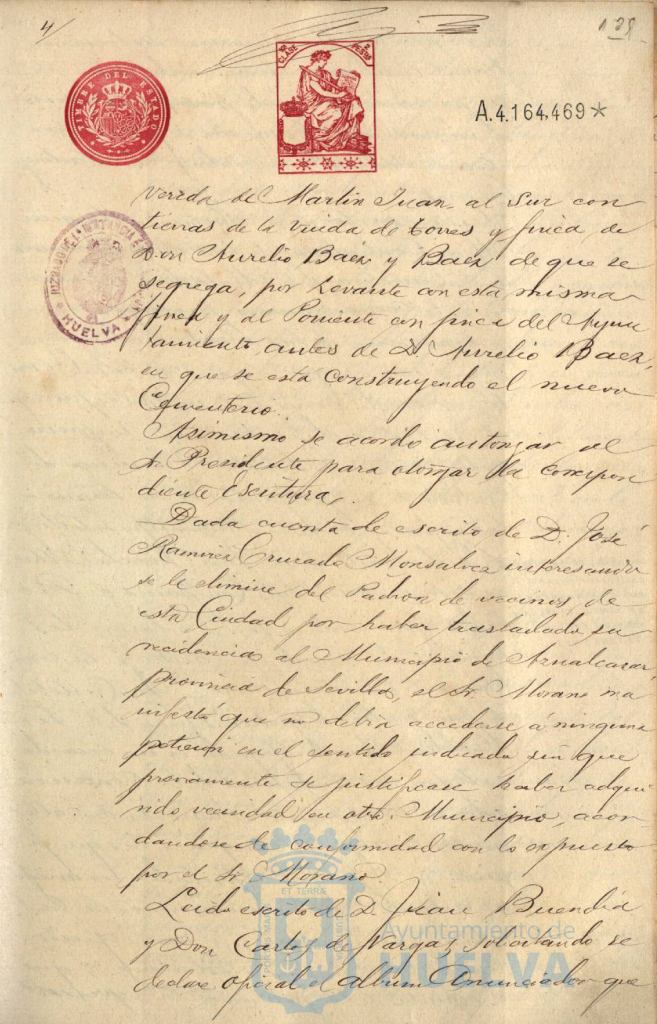 4
125
TIMBRE DEL ESTADO
10ª CLASE 2 PESETAS
A.4.164.469*
HUELVA
vereda de Martin Juan, al Sur con
tierras de la viuda de Torres y finca de
Don Aurelio Báez y Baez de que se
segrega, por Levante con esta misma
finca y al Poniente con finca del Ayun
tamiento, antes de D. Aurelio Báez,
en que se está construyendo el nuevo
Cementerio.
Asimismo se acordó autorizar al
Sr. Presidente para otorgar la correspon
diente escritura.
Dada cuenta de escrito de D. José
Ramirez Cruzado Monsalvez interesando
se le elimine del Padron de vecinos de
esta Ciudad por haber trasladado su
recidencia al Municipio de Aznalcazar,
provincia de Sevilla, el Sr. Morano ma
nifestó que no debia accederse á ninguna
peticion en el sentido indicado sin que
previamente se justificase haber adqui
rido vecindad en otro Municipio, acor
dandose de conformidad con lo expuesto
por el Sr. Morano.
Leido escrito de D. Juan Buendía
y Don Carlos de Vargas solicitando se
declare oficial el album Anunciador que
PORTUS MARIS ET TERRÆ
Ayuntamiento de
HUELVA